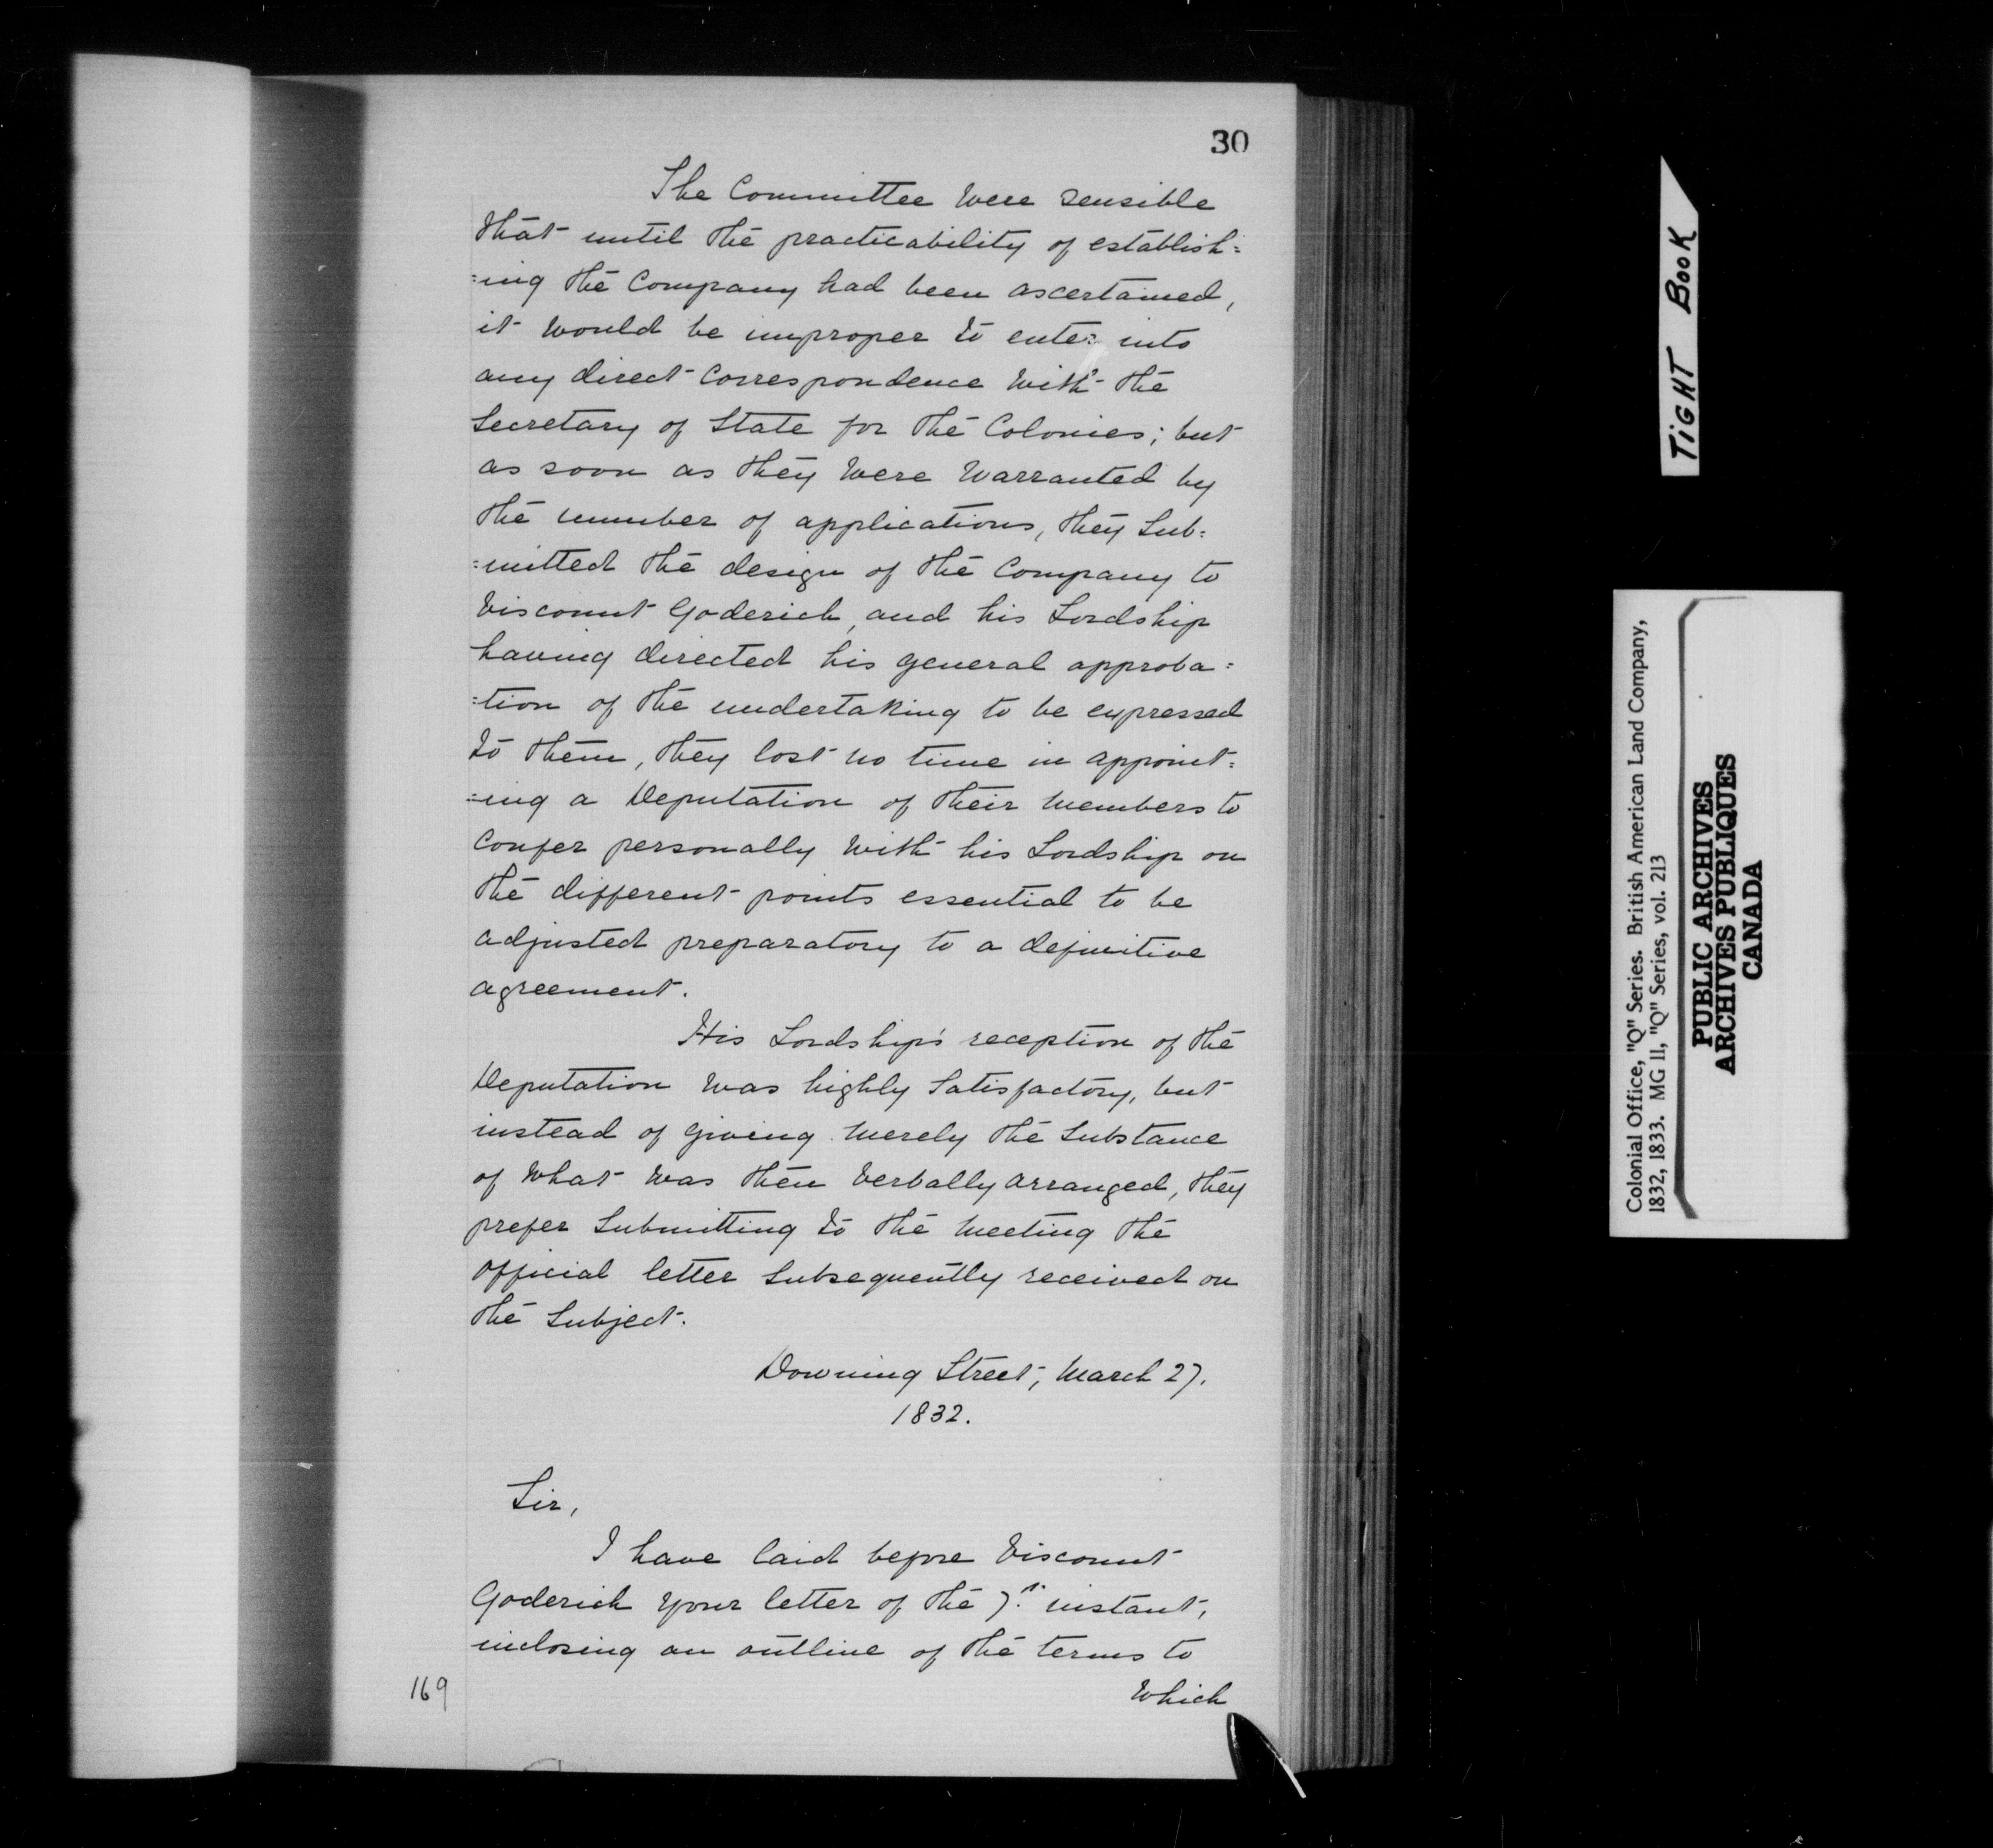 30
The Committee were sensible
that until the practicability of establish=
=ing the Company had been ascertained,
it would be improper to enter into
any direct correspondence with the
Secretary of State for the Colonies; but
as soon as they were warranted by
the number of applications, they sub=
=mitted the design of the Company to
Viscount Goderich, and his Lordship
having directed his general approba=
=tion of the undertaking to be expressed
to them, they lost no time in appoint=
=ing a Deputation of their members to
confer personally with his Lordship on
the different points essential to be
adjusted preparatory to a definitive
agreement.
His Lordship's reception of the
Deputation was highly satisfactory, but
instead of giving merely the substance
of what was then verbally arranged, they
prefer submitting to the meeting the
official letter subsequently received on
the subject.
Downing Street, March 27.
1832.
Sir,
I have laid before Viscount
Goderich your letter of the 7th instant,
inclosing an outline of the terms to
which
169
TIGHT BOOK
Colonial Office, "Q" Series. British American Land Company,
1832, 1833. MG 11, "Q" Series, vol. 213
PUBLIC ARCHIVES
ARCHIVES PUBLIQUES
CANADA